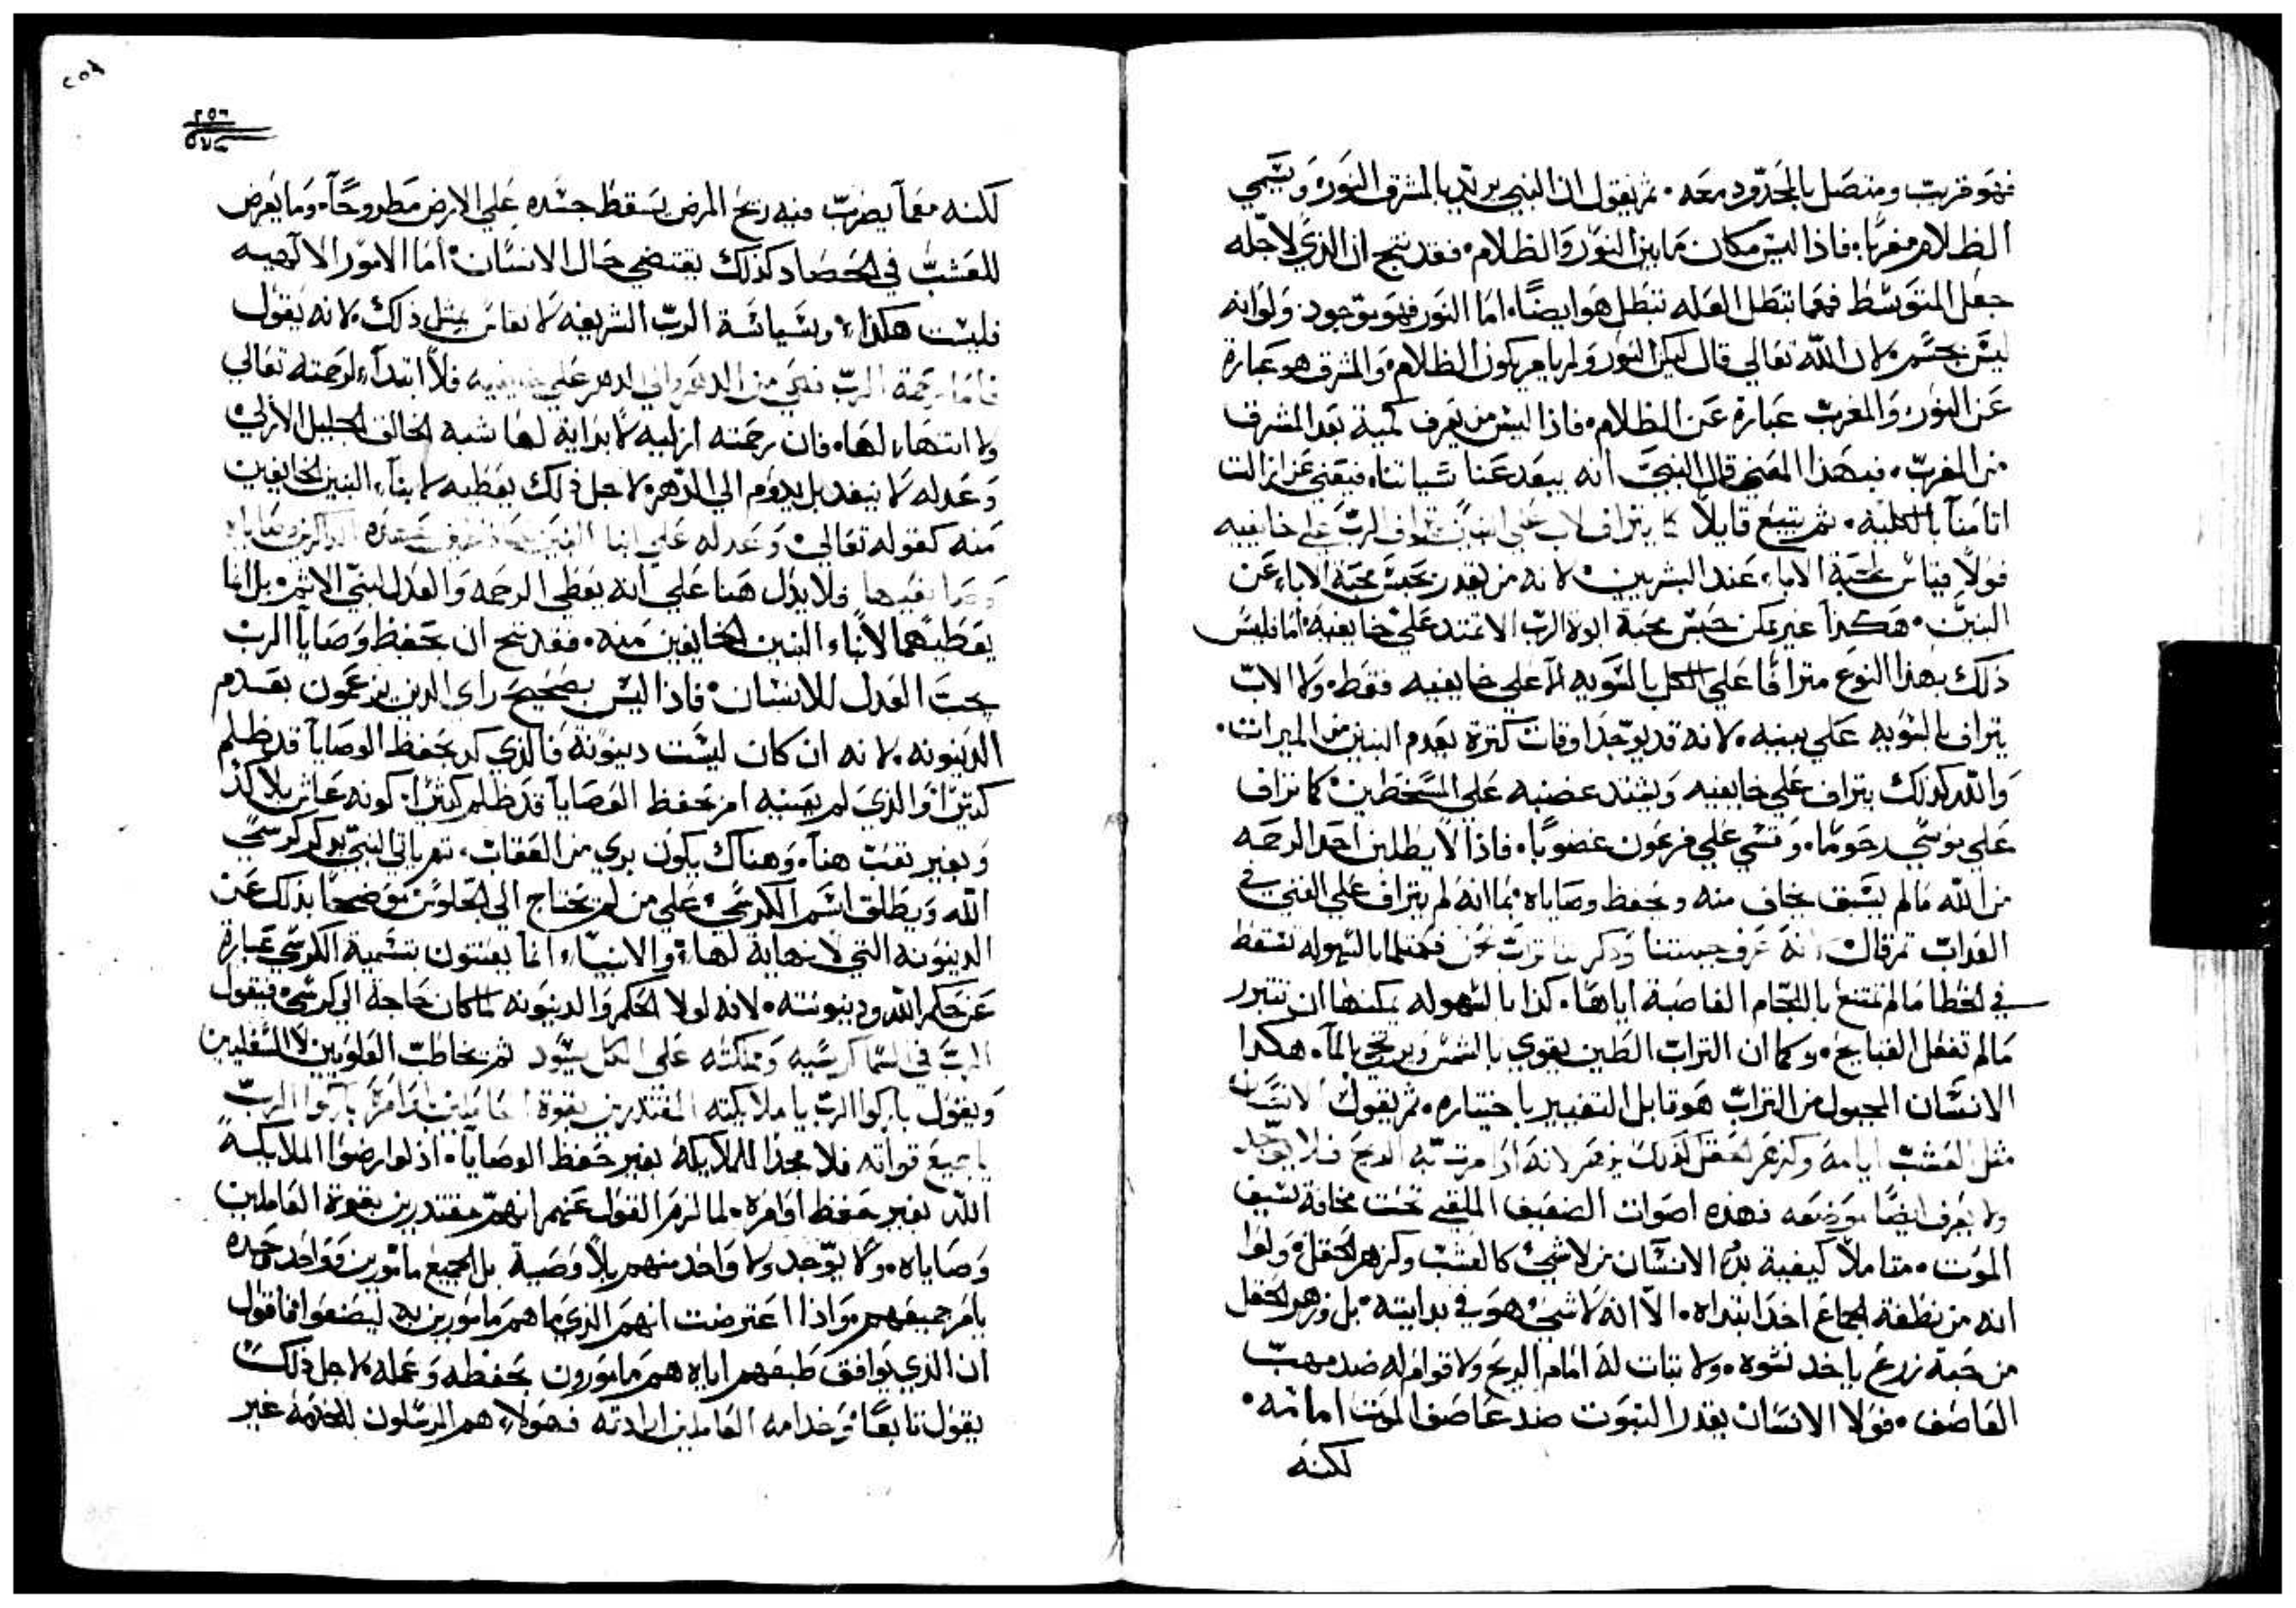 فهو قريب ومتصل بالحدود معه. ثم يقول ان النبي يريد بالمشرق النور ويسمي
الظلام مغربا. فاذا ليس مكان ما بين النور والظلام. فقد نتج ان الذي لاجله
جعل المتوسط فمما تبطل العله تبطل هو ايضًا. اما النور فهو موجود ولو انه
ليس بجسم لان الله تعالي قال ليكن النور ولم يامر بكون الظلام. والمشرق هو عبارة
عن النور والمغرب عبارة عن الظلام. فاذا ليس من يعرف كمية بعد المشرق
من المغرب. فبهذا المعني قال النبي انه يبعد عنا سياتنا. فيعني عن ازالت
اثامنا بالكليه. ثم يتبع قايلاً كما يتراف الاب علي البنين يتراف الرب علي خايفيه
فولا قياس لمحبة الاباء عند البشريين لانه من يقدر يحبس محبة الاباء عن
البنين. هكذا غير ممكن حبس محبة ابوة الرب الا تمتد علي خايفيه. اما فليس
ذلك بهذا النوع مترافًا علي الكل بالسويه الا علي خايفيه فقط. ولا الاب
يتراف بالسويه علي بنيه. لانه قد يوجد اوقات كثرة يعدم البنين من الميرات.
والله كذلك يتراف علي خايفيه ويشتد غضبه علي المسخطين كما تراف
علي موسي رحومًا. وقسي علي فرعون غضوبًا. فاذا لا يطلبن احد الرحمه
من الله مالم يسبق يخاف منه ويحفظ وصاياه. بما انه لم يتراف علي الغني في
العداب ثم قال انه عرف جبلتنا وذكر اننا تراب نحن فمثلما بالسهوله تسقط
في الخطا مالم تمتنع باللجام الغاصبة اياها. كذا بالسهوله يمكنها ان تتبرر
مالم تفعل القبايح. وكما ان التراب الطين يقوي بالشمس ويرتخي بالمآء. هكذا
الانسان المجبول من التراب هو قابل التغيير باختياره. ثم يقول الانسان
مثل العشب ايامه وكزهر الحقل كذلك يزهر لانه اذا مرت به الريح فلا يوجد
ولا يعرف ايضًا موضعه فهذه اصوات الضعيف الملقي تحت مخافة سيف
الموت. متاملاً كيفية بدء الانسان من لا شي كالعشب وكزهر الحقل. ولو
انه من نطفة الجماع اخد ابتداه. الاّ انه لا شي هو في بدايته. بل وزهر الحقل
من حبة زرع ياخد نشوه. ولا ثبات له امام الريح ولا قوام له ضد مهب
العاصف. فولا الانسان يقدر الثبوت ضد عاصف الموت اماته.
لكنه
٢٥٦
لكنه ممآ يضرب فيه ريح المرض يسقط جسده علي الارض مطروحًا. وما يعرض
للعشب في الحصاد كذلك يقتضي حال الانسان. اما الامور الالهيه
فليست هكذا. وسياسة الرب الشريفه لا تقاس بمثل ذلك. لانه يقول
فاما رحمة الرب فهي من الدهر والي الدهر علي خايفيه فلا ابتدآء لرحمته تعالي
ولا انتهاء لها. فان رحمته ازليه لا بداية لها شبه الخالق الجليل الازلي
وعدله لا ينفد بل يدوم الي الدهر. لاجل ذلك يعطيه لابنآء البنين الخايفين
منه كقوله تعالي وعدله علي ابنا البنين
فلا يدل هنا علي انه يعطي الرحمه والعدل لبني الاثم. بل انما
يعطيهما لابناء البنين الخايفين منه. فقد نتج ان تحفظ وصايا الرب
بحث العدل للانسان. فاذا ليس بصحيح راي الدين يزعمون بعدم
الدينونه. لانه ان كان ليست دينونة فالذي يحفظ الوصايا قد ظلم
كتيرا والذي لم يحفظ الوصايا قد ظلم كتيرًا كونه عاش بلا كد
وبغير تعب هنآ. وهناك يكون بري من العقاب. ثم ياتي النبي بذكر كرسي
الله ويطلق اسم الكرسي علي من لم يحتاج الي الجلوس موضحًا بذلك عن
الدينونه التي لا نهاية لها. والانبياء انما يعنون بتسمية الكرسي عبارة
عن حكم الله ودينونته. لانه لولا الحكم والدينونه لما كان حاجة الي كرسي. فيقول
الرب في السما كرسيه ومملكته علي الكل تسود ثم يخاطب العلويين لا السفليين
ويقول باركوا الرب يا ملايكته المقتدرين بقوة العاملين اوامره باركوا الرب
يا جميع قواته فلا مجدا للملايكه بغير حفظ الوصايا. اذ لو ارضوا الملايكه
الله بغير حفظ اوامره. لما لزم القول عنهم انهم مقتدرين بقوة العاملين
وصاياه. ولا يوجد ولا واحد منهم بلا وصية بل الجميع مامورين وواحد وحده
يامر جميعهم. واذا اعترضت انهم الذي ما هم مامورين به ليصنعوا فاقول
ان الذي يوافق طبعهم اياه هم مامورون بحفظه وعمله. لاجل ذلك
يقول تابعًا وخدامه العاملين ارادته فهولاء هم المرسلون للخدمه غير